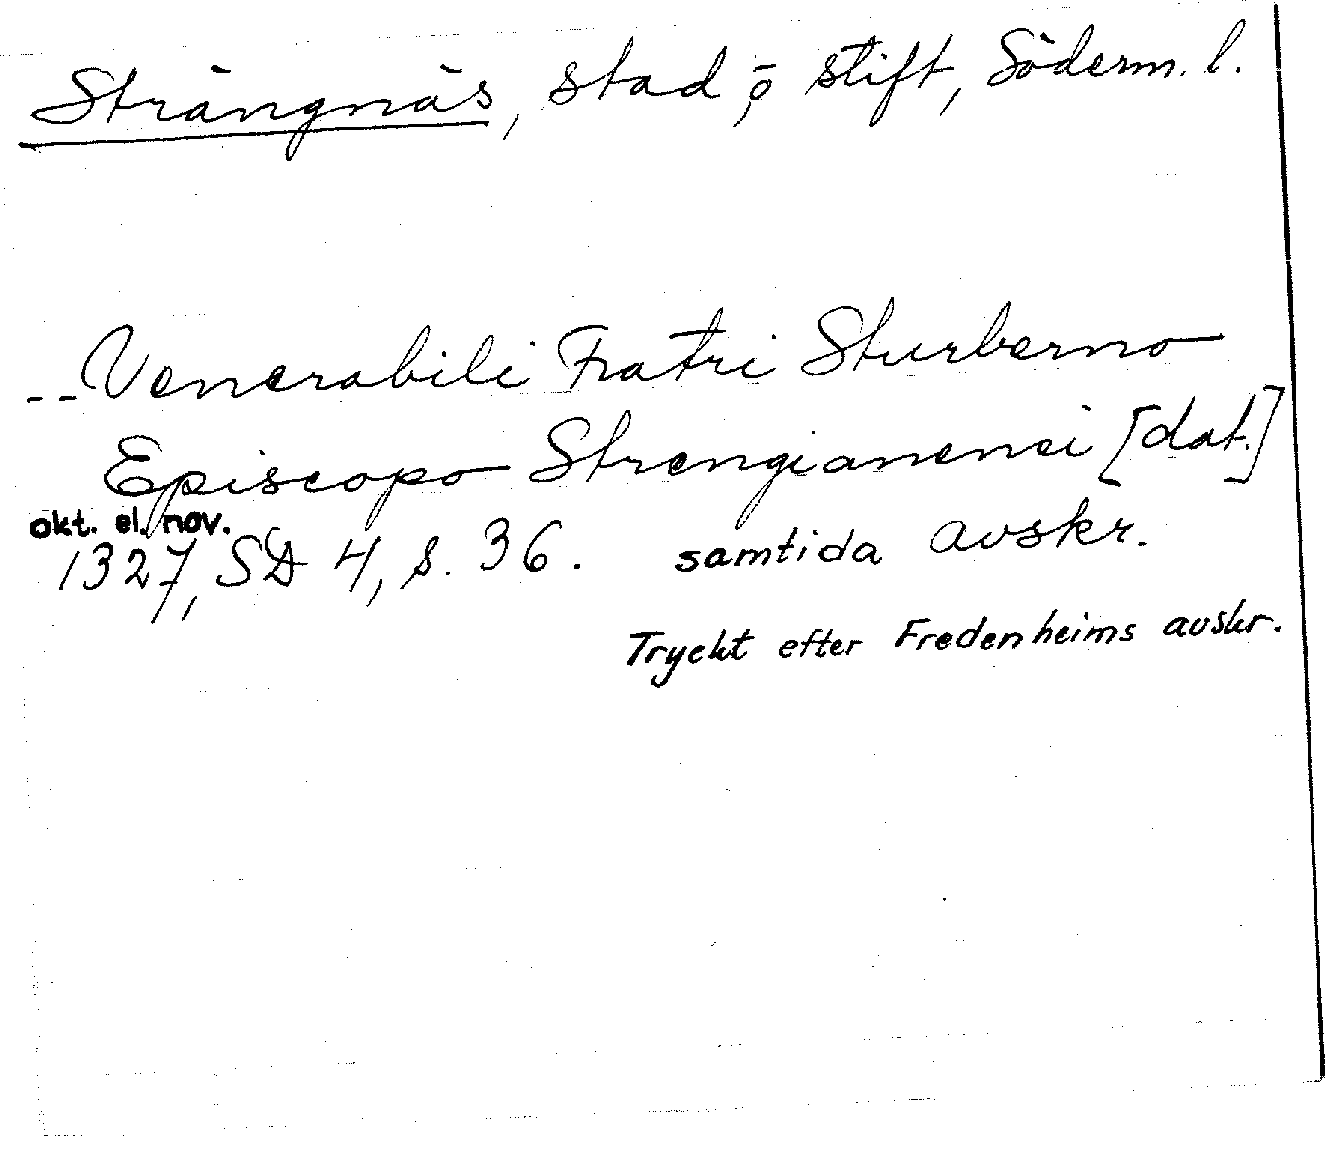 Strängnäs, stad o stift, Söderm. l.
-- Venerabili Fratri Sturberno
Episcopo Strengianensi [dat.]
okt. el. nov.
1327, SD 4, s. 36. samtida avskr.
Tryckt efter Fredenheims avskr.